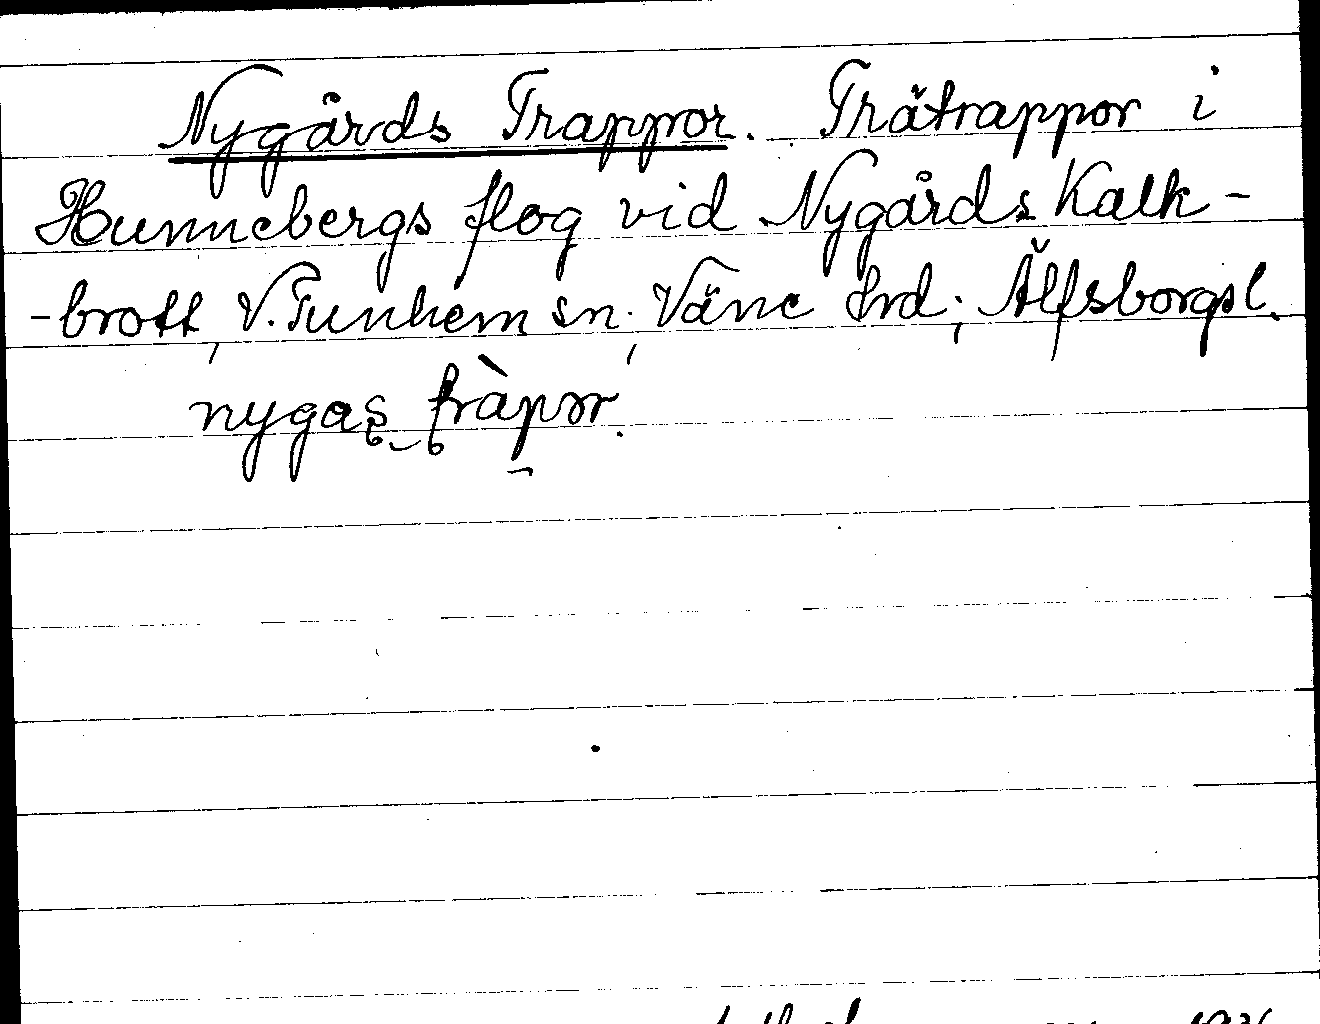 Nygårds Trappor. Trätrappor i
Hunnebergs flog vid Nygårds Kalk-
-brott, V. Tunhem sn. Väne hrd; Älfsborgs l.
nygas tràpər.